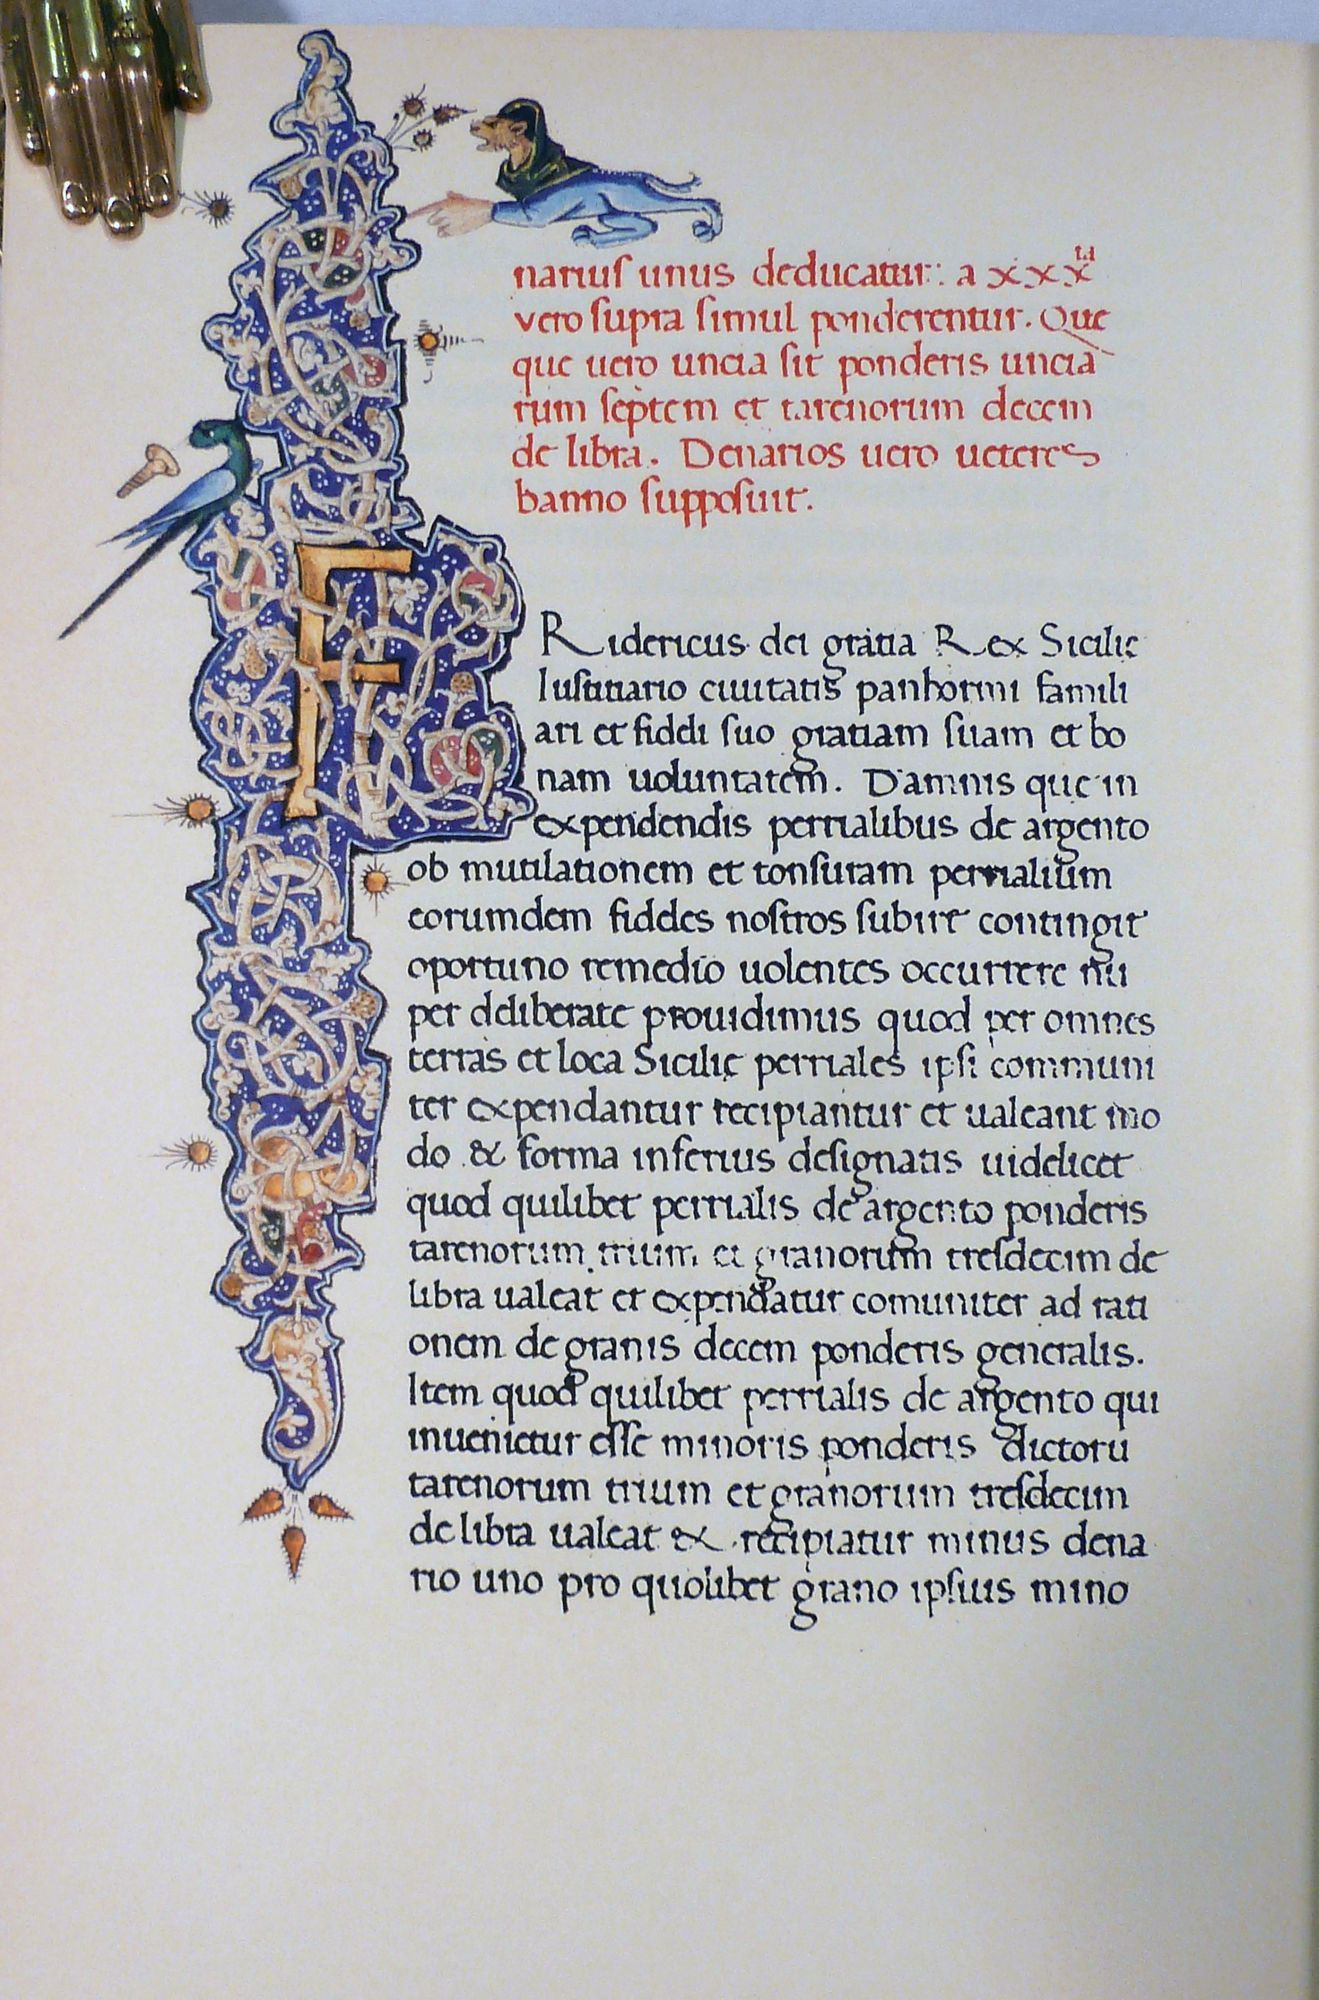 narius unus deducatur: a xxx.ta
vero supra simul ponderentur. Que
que uero uncia sit ponderis uncia
rum septem et tarenorum decem
de libra. Denarios uero ueteres
banno supposuit.
F
Ridericus dei gratia Rex Sicilie
Iustitiario ciuitatis panhormi famili
ari et fideli suo gratiam suam et bo
nam uoluntatem. Damnis que in
expendendis perrialibus de argento
ob mutilationem et tonsuram perrialium
eorumdem fideles nostros subire contingit
oportuno remedio uolentes occurrere nu
per deliberate prouidimus quod per omnes
terras et loca Sicilie perriales ipsi communi
ter expendantur recipiantur et ualeant mo
do & forma inferius designatis uidelicet
quod quilibet perrialis de argento ponderis
tarenorum trium et granorum tresdecim de
libra ualeat et expendatur comuniter ad rati
onem de granis decem ponderis generalis.
Item quod quilibet perrialis de argento qui
inuenietur esse minoris ponderis dictoru
tarenorum trium et granorum tresdecim
de libra ualeat & recipiatur minus dena
rio uno pro quolibet grano ipsius mino